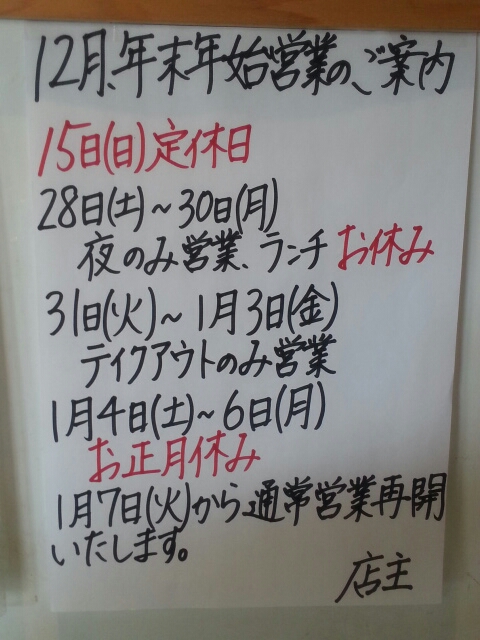 12月、年末年始営業のご案内
15日(日)定休日
28日(土)～30日(月)
夜のみ営業、ランチお休み
31日(火)～1月3日(金)
テイクアウトのみ営業
1月4日(土)～6日(月)
お正月休み
1月7日(火)から通常営業再開
いたします。
店主